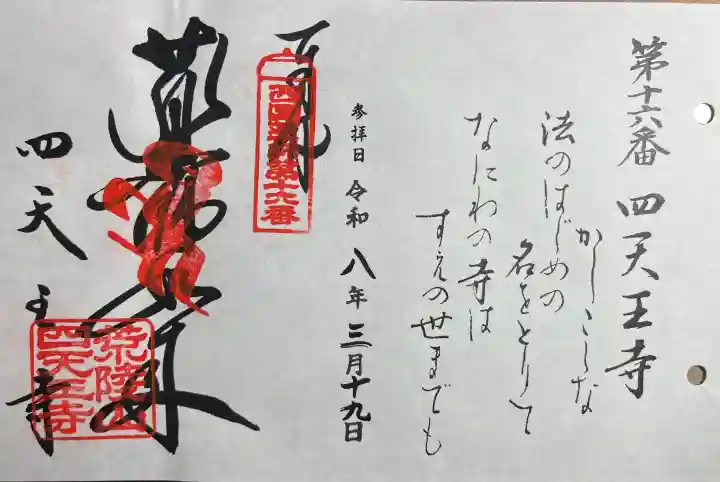 第十六番 四天王寺
かしこしな
法のはじめの
名をとりて
なにわの寺は
すえの世までも
参拝日 令和八年三月十九日
奉拝
西国薬師第十六番
薬師如来
荒陵山
四天王寺
四天王寺